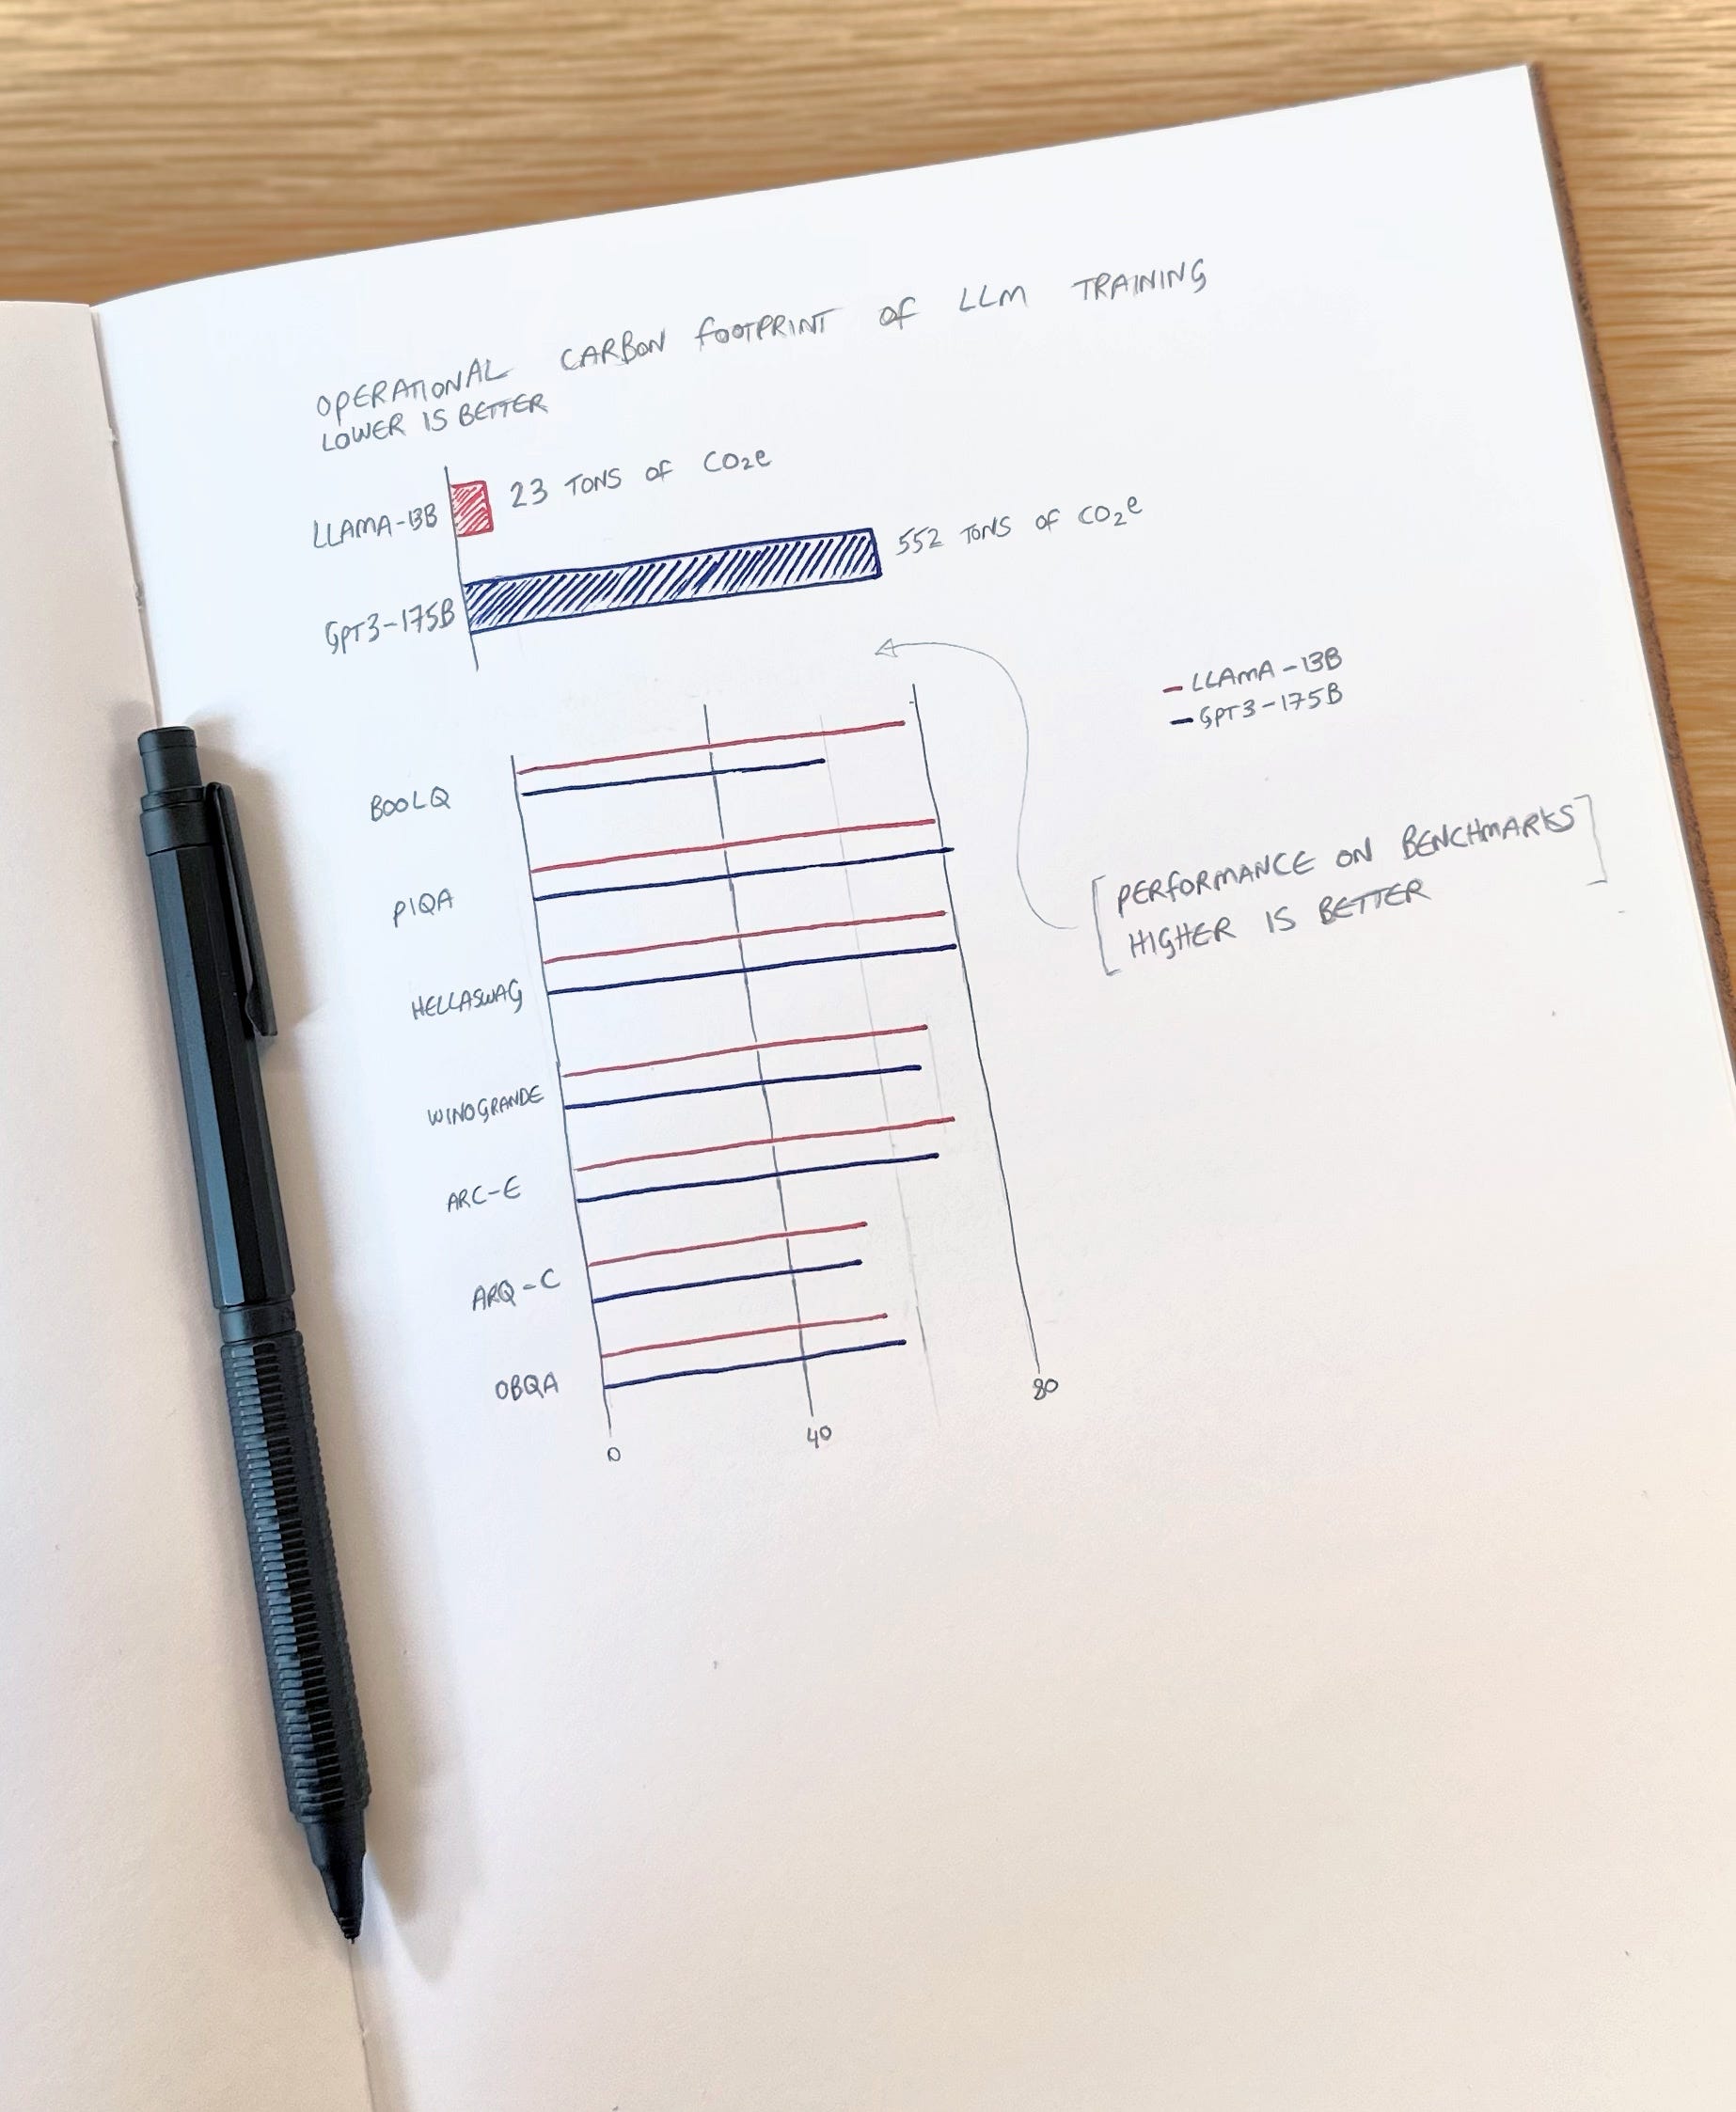 OPERATIONAL CARBON FOOTPRINT OF LLM TRAINING
LOWER IS BETTER
LLAMA-13B
23 TONS OF CO₂e
GPT3-175B
552 TONS OF CO₂e
LLAMA-13B
GPT3-175B
[PERFORMANCE ON BENCHMARKS
HIGHER IS BETTER]
BOOLQ
PIQA
HELLASWAG
WINOGRANDE
ARC-E
ARQ-C
OBQA
0
40
80